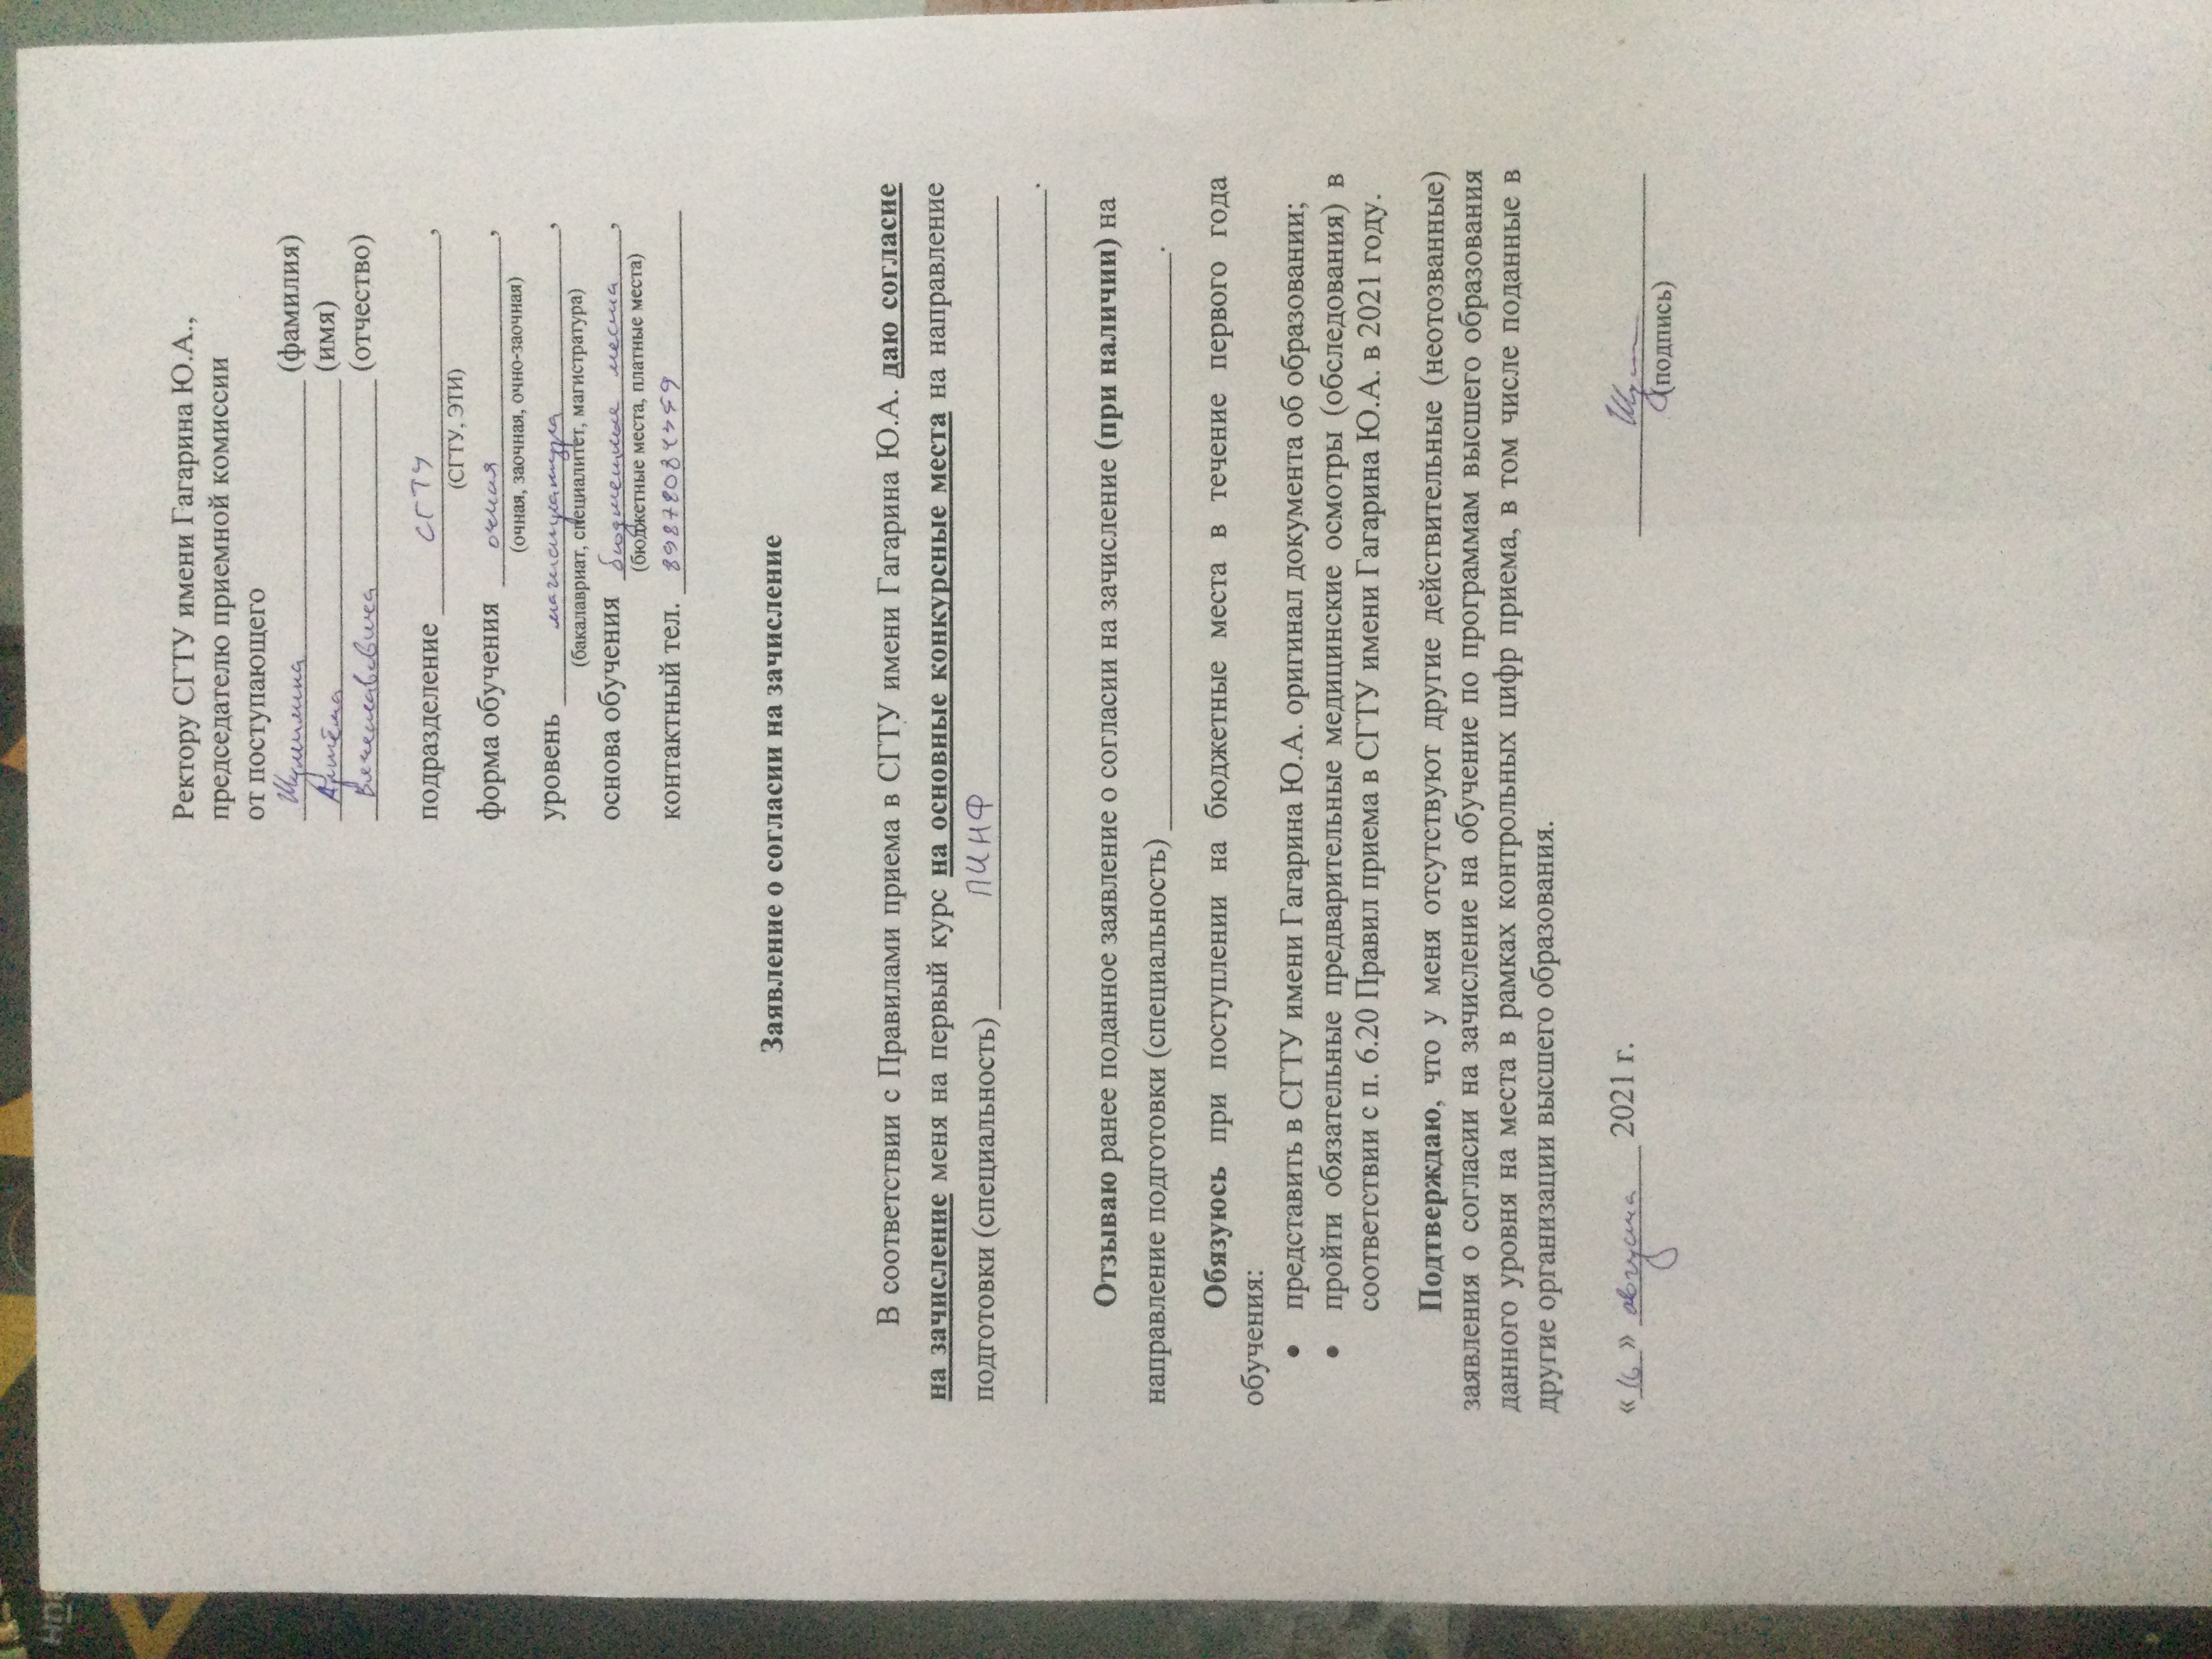 Ректору СГТУ имени Гагарина Ю.А.,
председателю приемной комиссии
от поступающего
Шумилина (фамилия)
Артёма (имя)
Вячеславовича (отчество)
подразделение СГТУ,
(СГТУ, ЭТИ)
форма обучения очная,
(очная, заочная, очно-заочная)
уровень магистратура,
(бакалавриат, специалитет, магистратура)
основа обучения бюджетные места,
(бюджетные места, платные места)
контактный тел.
Заявление о согласии на зачисление
В соответствии с Правилами приема в СГТУ имени Гагарина Ю.А. даю согласие
на зачисление меня на первый курс на основные конкурсные места на направление
подготовки (специальность) ПИНФ
.
Отзываю ранее поданное заявление о согласии на зачисление (при наличии) на
направление подготовки (специальность) .
Обязуюсь при поступлении на бюджетные места в течение первого года
обучения:
• представить в СГТУ имени Гагарина Ю.А. оригинал документа об образовании;
• пройти обязательные предварительные медицинские осмотры (обследования) в
соответствии с п. 6.20 Правил приема в СГТУ имени Гагарина Ю.А. в 2021 году.
Подтверждаю, что у меня отсутствуют другие действительные (неотозванные)
заявления о согласии на зачисление на обучение по программам высшего образования
данного уровня на места в рамках контрольных цифр приема, в том числе поданные в
другие организации высшего образования.
«16» августа 2021 г.
(подпись)